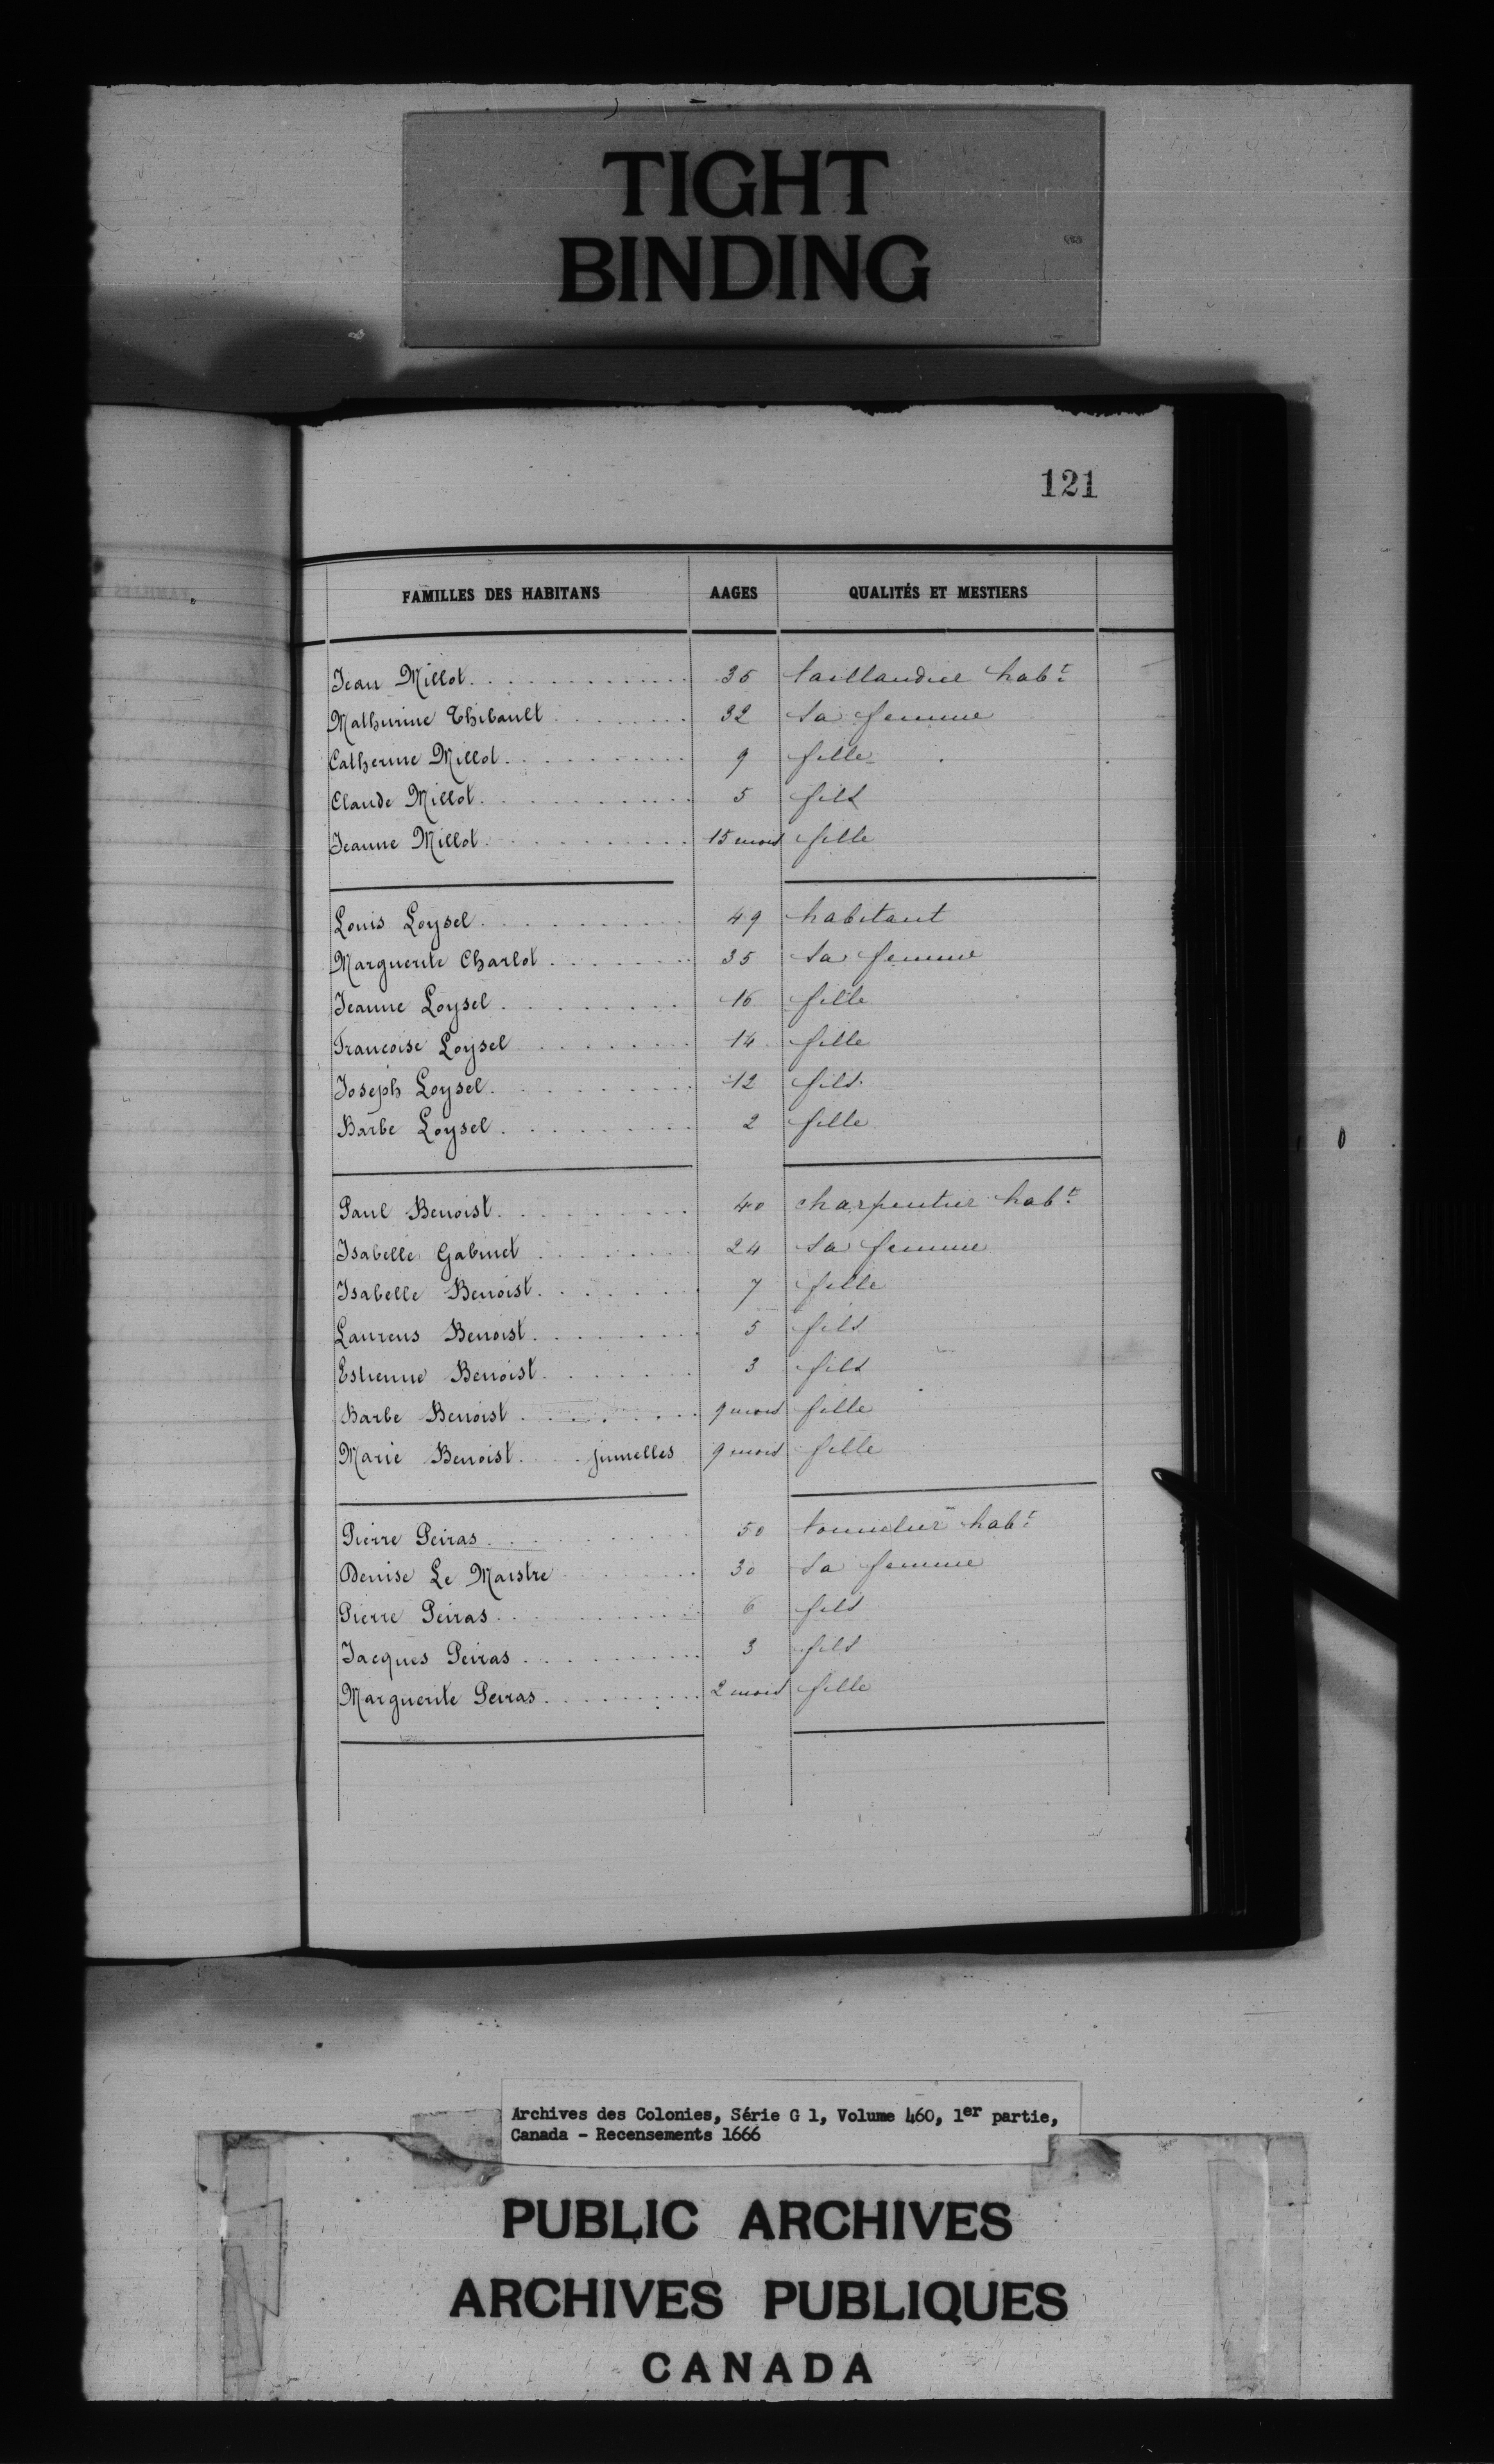 TIGHT
BINDING
121
FAMILLES DES HABITANS AAGES QUALITÉS ET MESTIERS
Jean Millot 35 taillandier habt
Mathurine Thibault 32 sa femme
Catherine Millot 9 fille
Claude Millot 5 fils
Jeanne Millot 15 mois fille
Louis Loysel 49 habitant
Marguerite Charlot 35 sa femme
Jeanne Loysel 16 fille
Francoise Loysel 14 fille
Joseph Loysel 12 fils
Barbe Loysel 2 fille
Paul Benoist 40 charpentier habt
Isabelle Gabinet 24 sa femme
Isabelle Benoist 7 fille
Laurens Benoist 5 fils
Estienne Benoist 3 fils
Barbe Benoist 9 mois fille
Marie Benoist jumelles 9 mois fille
Pierre Peiras 50 tonnelier habt
Denise Le Maistre 30 sa femme
Pierre Peiras 6 fils
Jacques Peiras 3 fils
Marguerite Peiras 2 mois fille
Archives des Colonies, Série G 1, Volume 460, 1er partie,
Canada - Recensements 1666
PUBLIC ARCHIVES
ARCHIVES PUBLIQUES
CANADA